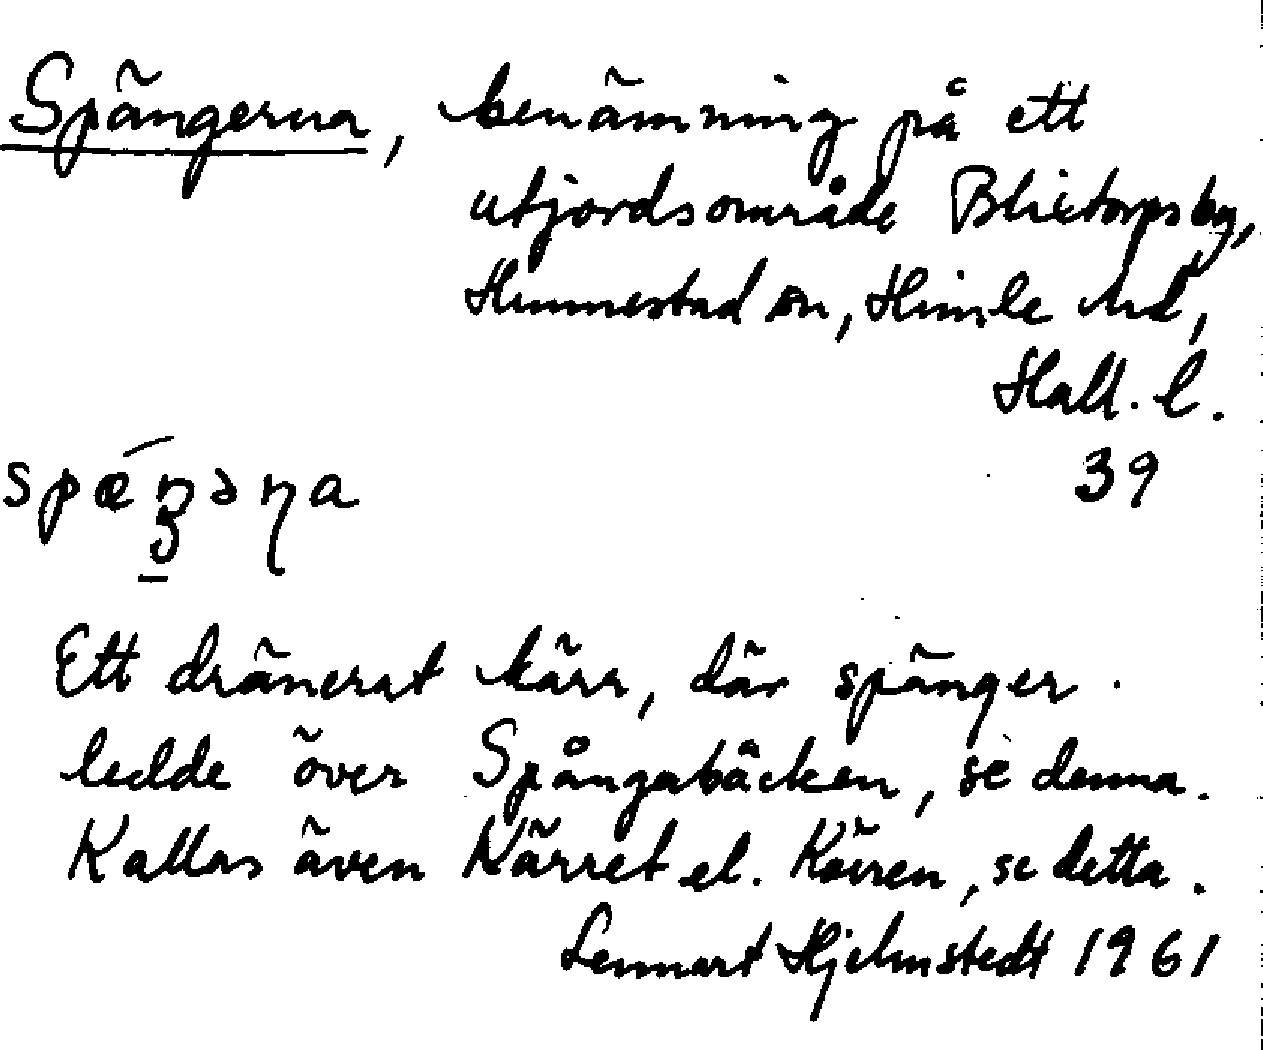 Spängerna, benämning på ett
utjordsområde Blixtorps by,
Hunnestad sn, Himle hd,
Hall. l.
39
Ett dränerat kärr, där spänger
ledde över Spångabäcken, se denna.
Kallas även Kärret el. Kärren, se detta.
Lennart Hjelmstedt 1961